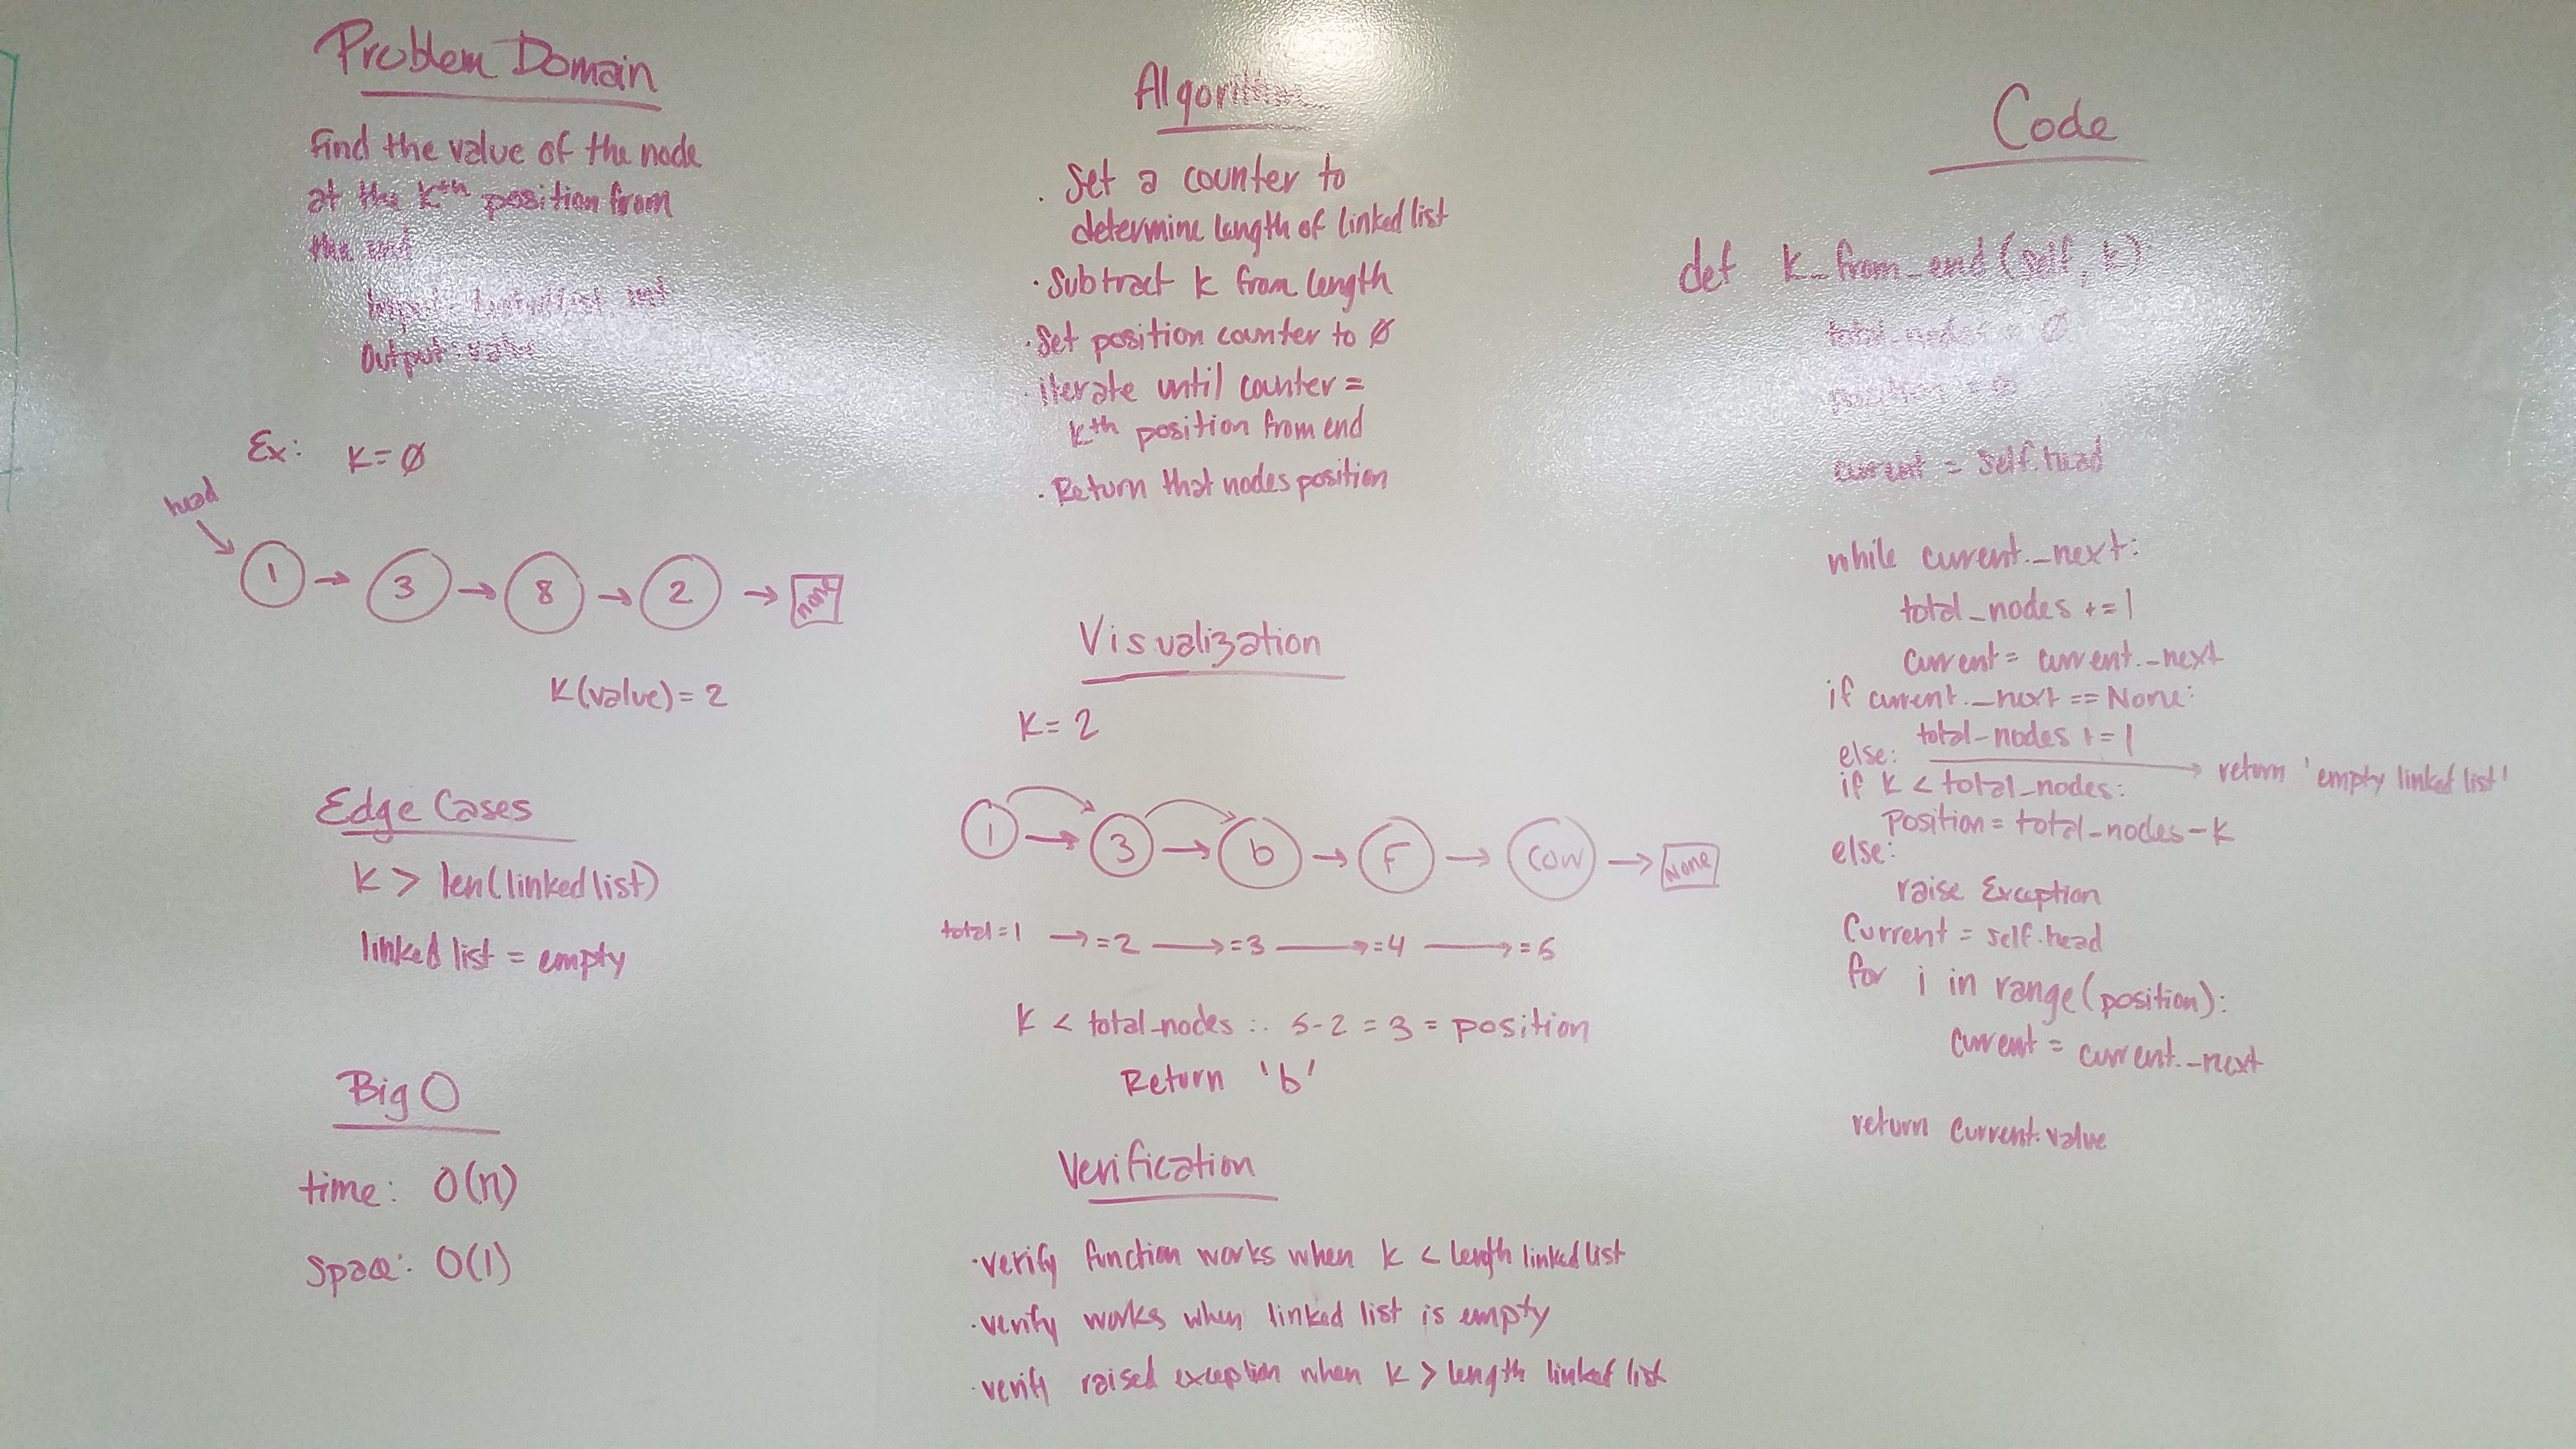 Problem Domain
Find the value of the node
at the kth position from
the end
Input: linked list, int
Output: value
Ex: K = Ø
head
1 → 3 → 8 → 2 → None
K(value) = 2
Edge Cases
K > len(linked list)
linked list = empty
Big O
time: O(n)
Space: O(1)
Algorithm
· Set a counter to
determine length of linked list
· Subtract k from length
· Set position counter to Ø
· iterate until counter =
kth position from end
· Return that nodes position
Visualization
K = 2
1 → 3 → b → F → COW → None
total = 1 → = 2 → = 3 → = 4 → = 5
K < total_nodes ∴ 5-2 = 3 = position
Return 'b'
Verification
· verify function works when k < length linked list
· verify works when linked list is empty
· verify raised exception when k > length linked list
Code
def k_from_end(self, k)
total_nodes = Ø
position = Ø
current = self.head
while current._next:
total_nodes += 1
current = current._next
if current._next == None:
total_nodes += 1
else: → return 'empty linked list'
if k < total_nodes:
position = total_nodes - k
else:
raise Exception
Current = self.head
for i in range(position):
current = current._next
return current.value